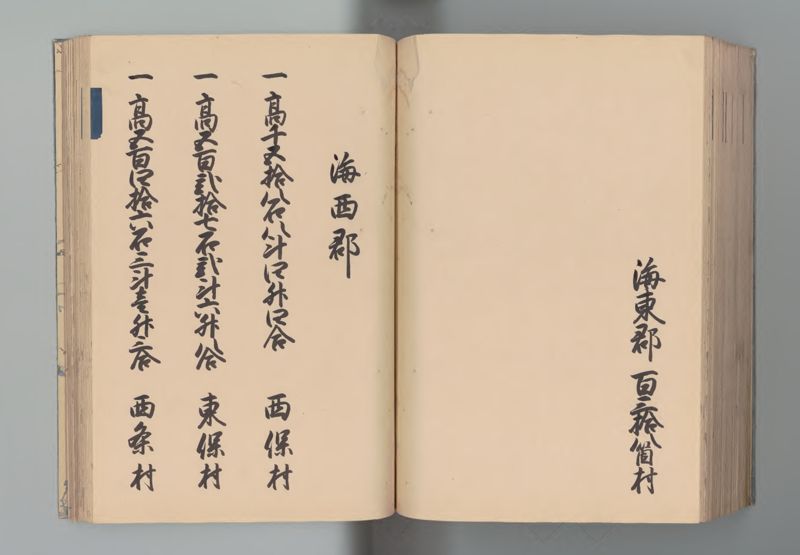 海東郡 百三拾八箇村
海西郡
一 高千五拾八石八斗四升四合 西保村
一 高五百弐拾七石弐斗六升八合 東保村
一 高五百四拾六石三斗壱升二合 西条村